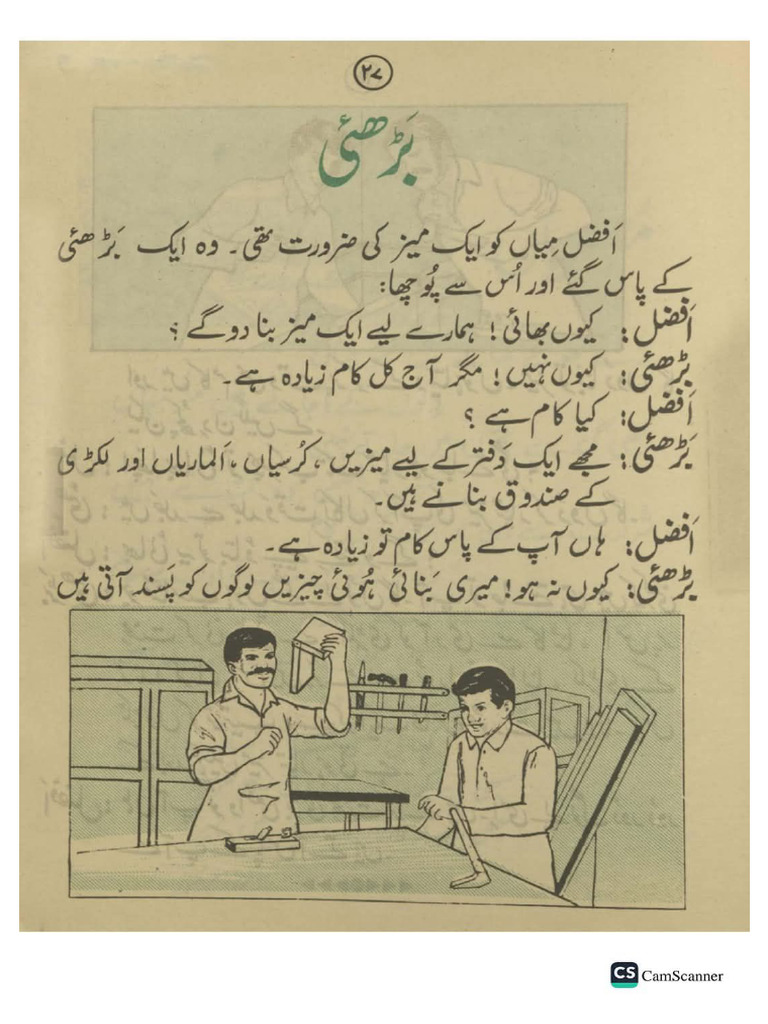 ۲۷
بَڑھئی
اَفضل مِیاں کو ایک میز کی ضرورت تھی۔ وہ ایک بَڑھئی
کے پاس گئے اور اُس سے پُوچھا:
اَفضل: کیوں بھائی! ہمارے لیے ایک میز بنا دو گے؟
بَڑھئی: کیوں نہیں! مگر آج کل کام زیادہ ہے۔
اَفضل: کیا کام ہے؟
بَڑھئی: مجھے ایک دَفتر کے لیے میزیں، کُرسیاں، اَلماریاں اور لکڑی
کے صندوق بنانے ہیں۔
اَفضل: ہاں آپ کے پاس کام تو زیادہ ہے۔
بَڑھئی: کیوں نہ ہو! میری بَنائی ہُوئی چیزیں لوگوں کو پَسند آتی ہیں
CS CamScanner